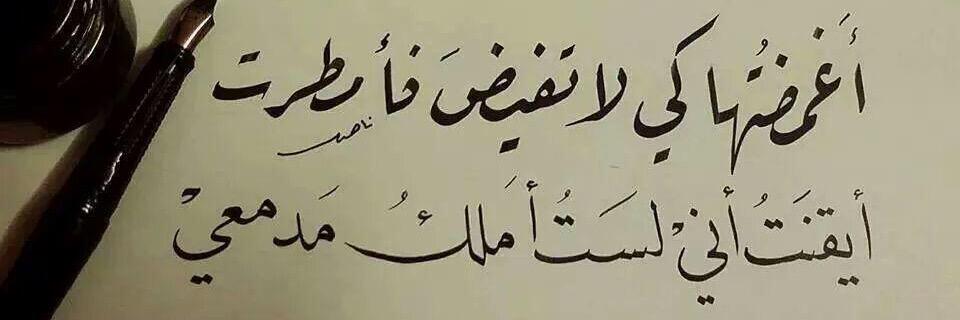 أَغمضتُها كي لا تفيضَ فأمطرت
ناصر
أيقنَتُ أنيْ لسَتُ أمَلكُ مَدمعيْ